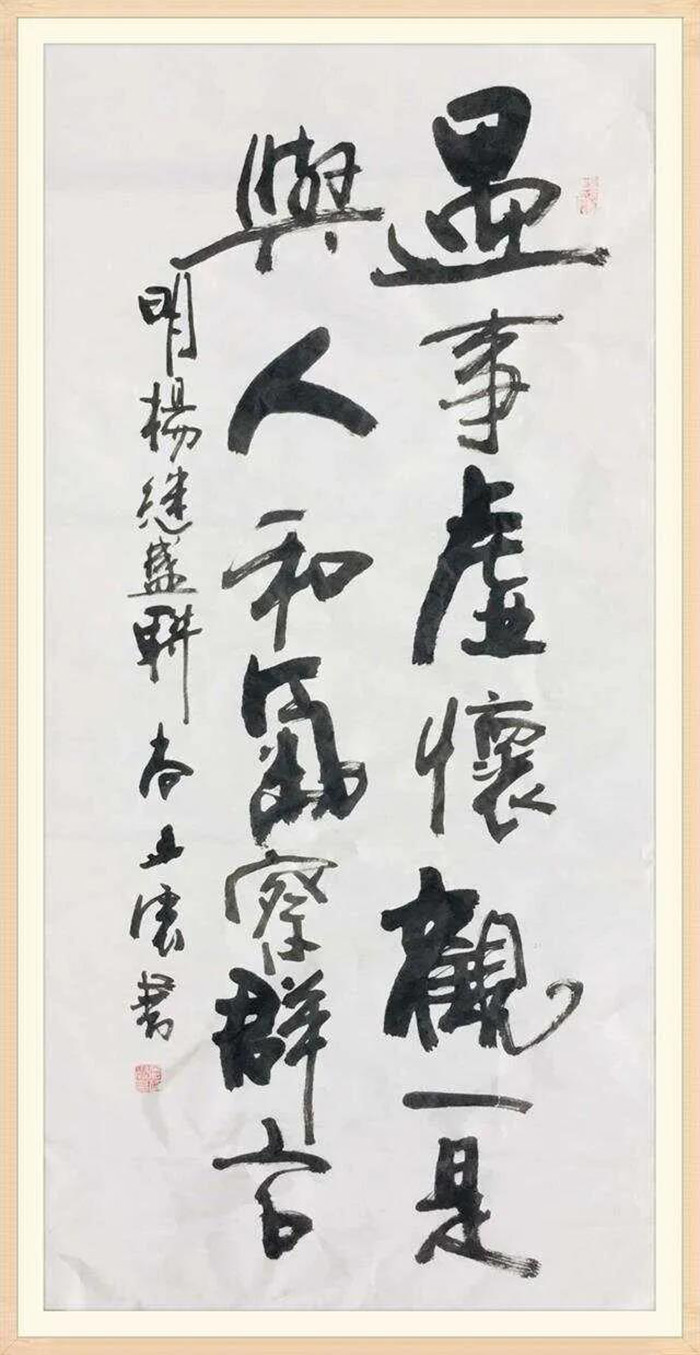 遇事虛懷觀一是
與人和氣察群言
明楊继盛联 尚立濃書